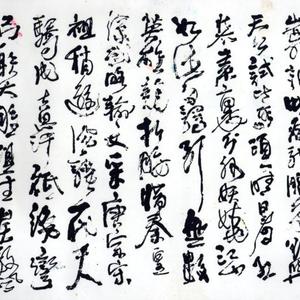 山舞銀蛇原馳蠟象欲與
天公試比高須晴日看紅
裝素裹分外妖嬈江山
如此多嬌引無數
英雄競折腰惜秦皇
漢武略輸文采唐宗宋
祖稍遜風騷一代天
驕成吉思汗祇識彎
弓射大雕俱往矣數風